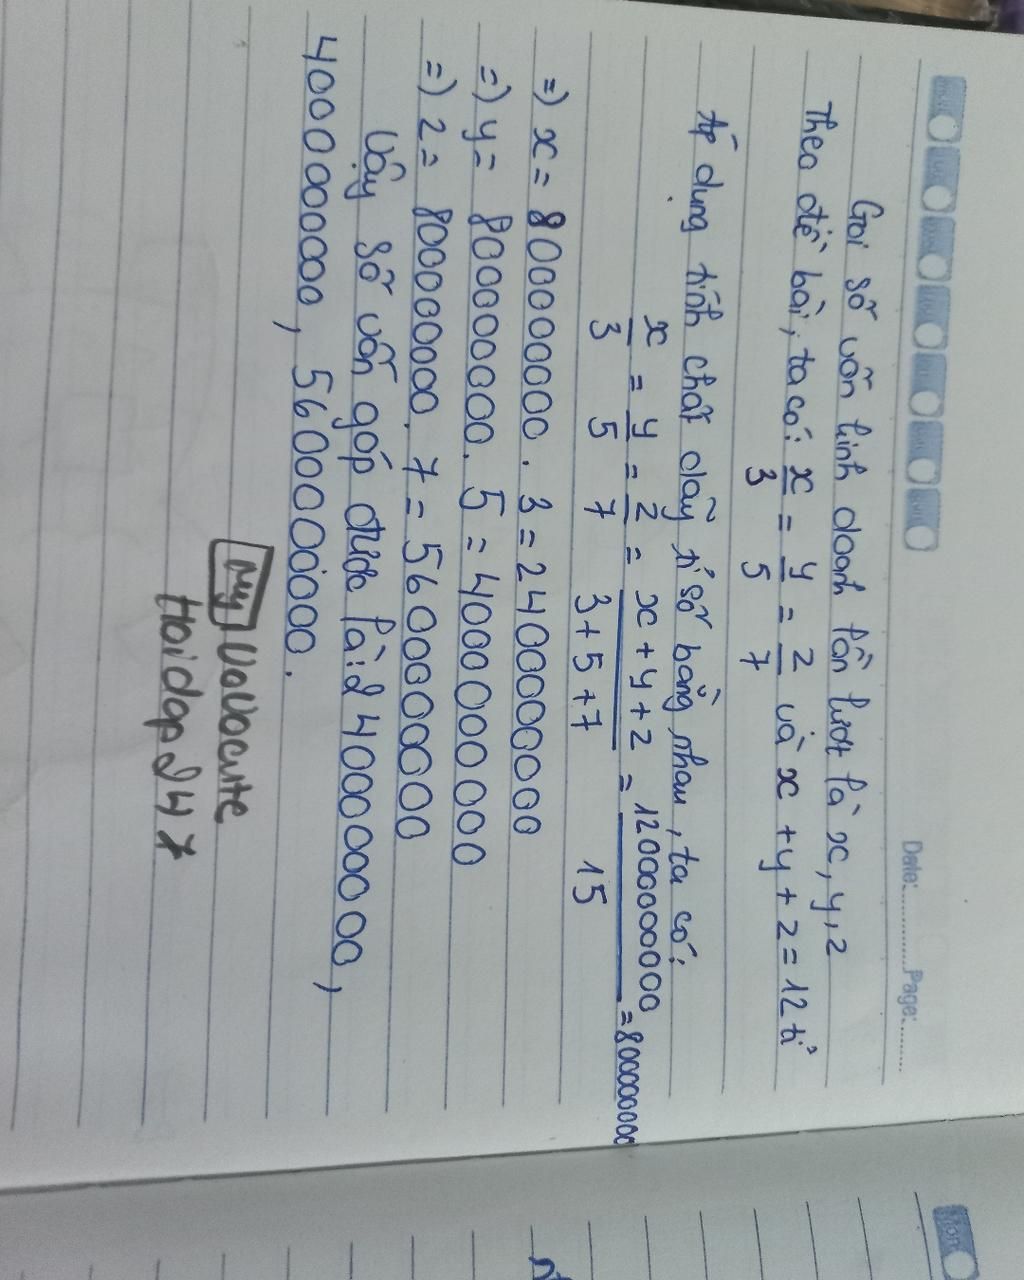 Date: Page:
Gọi số vốn kinh doanh lần lượt là x, y, z
Theo đề bài, ta có: x/3 = y/5 = z/7 và x + y + z = 12 tỉ
Áp dụng tính chất dãy tỉ số bằng nhau, ta có:
x/3 = y/5 = z/7 = x + y + z/3 + 5 + 7 = 12000000000/15 = 800000000
=) x = 800000000 . 3 = 2400000000
=) y = 800000000 . 5 = 4000000000
=) z = 800000000 . 7 = 5600000000
Vậy số vốn góp được là: 2400000000,
4000000000, 5600000000.
My VaVacute
Hoidap247